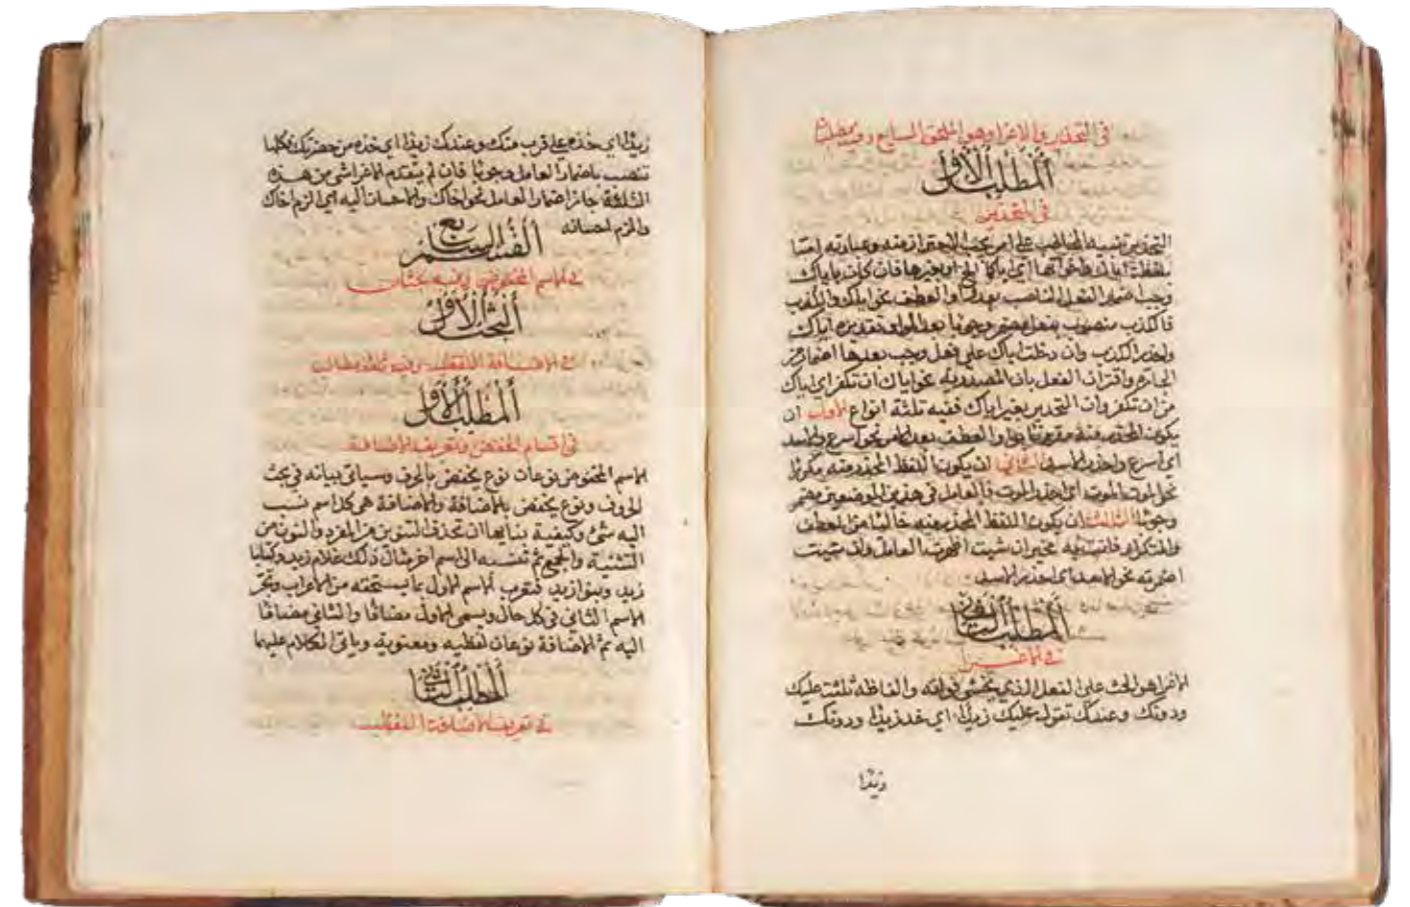 في التحذير والاغرا وهو الملحق السابع وفيه مطلبان
المطلب الاول
في التحذير
التحذير تنبيه المخاطب على امر يجب الاحتراز منه وعبارته اما
بلفظة اياك واخواتها اي اياكما الخ او بغيرها فان كان باياك
وجب اضمار الفعل الناصب بعدها والعطف نحو اياك والكذب
فالكذب منصوب بفعل مضمر وجوبا بعد الواو تقديره اياك
واحذر الكذب وان دخلت اياك على فعل وجب بعدها اضمار من
الجارة واقتران الفعل بان المصدرية نحو اياك ان تكفر اي اياك
من ان تكفر وان التحذير بغير اياك ففيه ثلثة انواع الاول ان
يكون المحذر منه مقرونا بواو العطف بعد الامر نحو اسرع والاسد
اي اسرع واحذر الاسد الثاني ان يكون اللفظ المحذر منه مكررا
نحو الموت الموت اي احذر الموت فالعامل في هذين الموضعين مضمر
وجوبا الثالث ان يكون اللفظ المحذر منه خاليا من العطف
والتكرار فانت فيه مخير ان شيت اظهرت العامل وان شيت
اضمرته نحو الاسد اي احذر الاسد
المطلب الثاني
في الاغرا
الاغرا هو الحث على الفعل الذي يخشى فواته والفاظه ثلثة عليك
ودونك وعندك تقول عليك زيدا اي خذ زيدا ودونك
زيدا
زيدا اي خذه على قرب منك وعندك زيدا اي خذه من حضرتك فكلها
تنصب باضمار العامل وجوبا فان لم يتقدم الاغرا شي من هذه
الثلثة جاز اضمار العامل نحو اخاك والاحسان اليه اي الزم اخاك
والزم احسانه
القسم السابع
في الاسم المخفوض وفيه بحثان
البحث الاول
في الاضافة اللفظية وفيه ثلثة مطالب
المطلب الاول
في اقسام الخفض وتعريف الاضافة
الاسم المخفوض نوعان نوع يخفض بالحرف وسياتي بيانه في بحث
الحروف ونوع يخفض بالاضافة والاضافة هي كل اسم نسب
اليه شئ وكيفية بنايها ان تحذف التنوين من المفرد والنون من
التثنية والجمع ثم تضيفه الى اسم اخر مثال ذلك غلام زيد وكتابا
زيد وبنوا زيد فتعرب الاسم الاول بما يستحقه من الاعراب وتجر
الاسم الثاني في كل حال ويسمى الاول مضافا والثاني مضافا
اليه ثم الاضافة نوعان لفظيه ومعنوية وياتي الكلام عليهما
المطلب الثاني
في تعريف الاضافة اللفظية